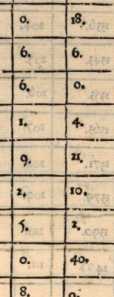 0. 18.
6. 6.
6. 0.
1. 4.
9. 21.
2. 10.
5. 2.
0. 40.
8. 0.